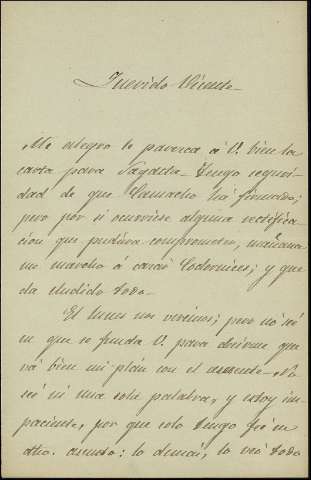 Querido Vicente-
Me alegro le parezca á V. bien la
carta para Sagasta- Tengo seguri-
dad de que Camacho há firmado;
pero por si ocurriese alguna rectifica-
cion que pudiera comprometer, mañana
me marcho á cazar Codornices; y que-
da eludido todo-
El lunes nos veremos; pero nó sé
en que se funda V. para decirme que
vá bien mi plán con el ausente- No
sé ni una sola palabra, y estoy im-
paciente, por que solo tengo fé en
dho. asunto: lo demás, lo veo todo